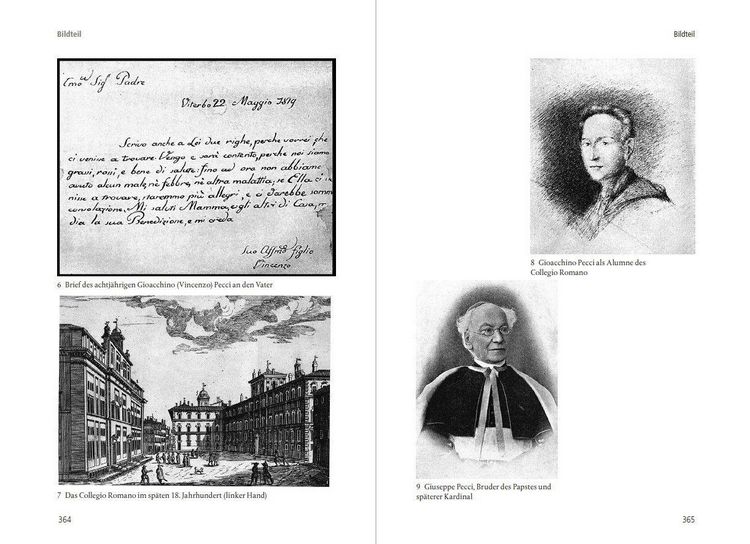 Bildteil
Emo Sig Padre
Viterbo 22 Maggio 1819
Scrivo anche a Lei due righe, perche vorrei che
ci venisse a trovare. Vengo e sarà contento, perche noi siamo
grassi, rossi, e bene di salute: fino ad ora non abbiamo
avuto alcun male, nè febbre, nè altra malattia, se Ella ci ve
nisse a trovare, staremmo più allegri, e ci darebbe somm
consolazione. Mi saluti Mamma, e gli altri di Casa, m
dia la sua Benedizione, e mi creda
Suo Affmo figlio
Vincenzo
6 Brief des achtjährigen Gioacchino (Vincenzo) Pecci an den Vater
7 Das Collegio Romano im späten 18. Jahrhundert (linker Hand)
364
Bildteil
8 Gioacchino Pecci als Alumne des
Collegio Romano
9 Giuseppe Pecci, Bruder des Papstes und
späterer Kardinal
365